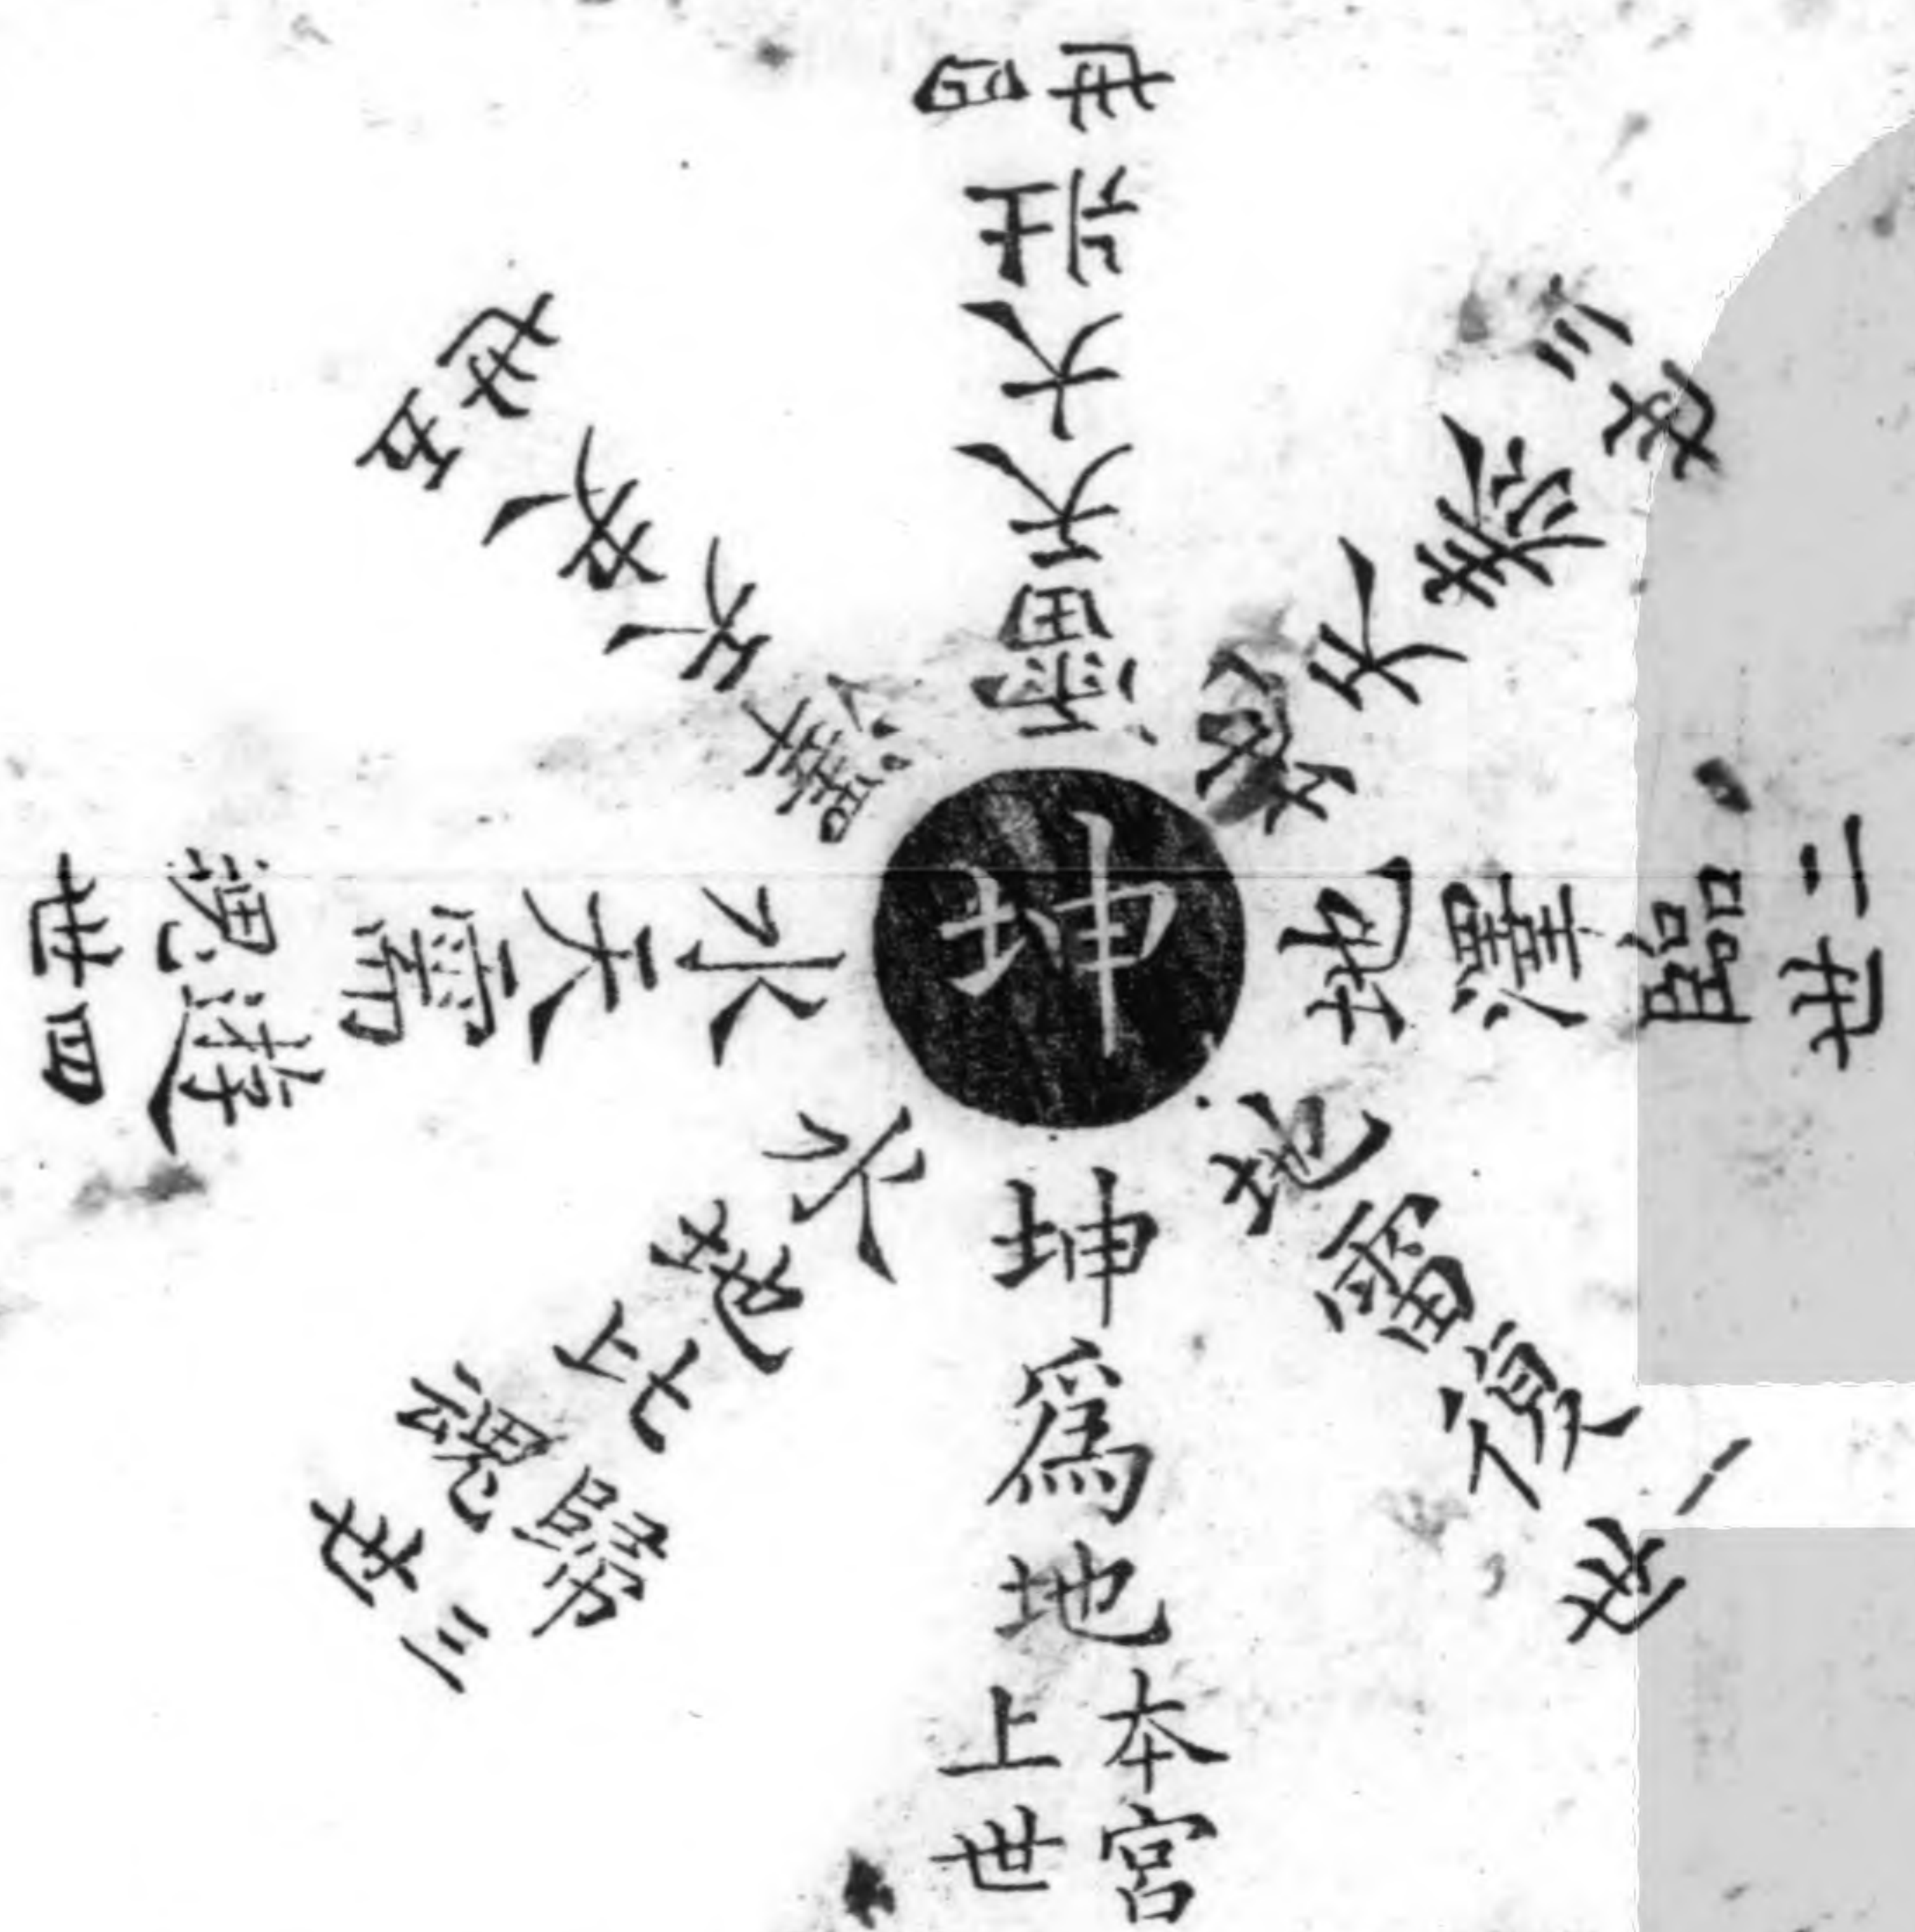 坤
坤爲地
本宮
上世
地雷復
一世
地澤臨
二世
地天泰
三世
雷天大壯
四世
澤天夬
五世
水天需
遊魂
四世
水地比
歸魂
三世